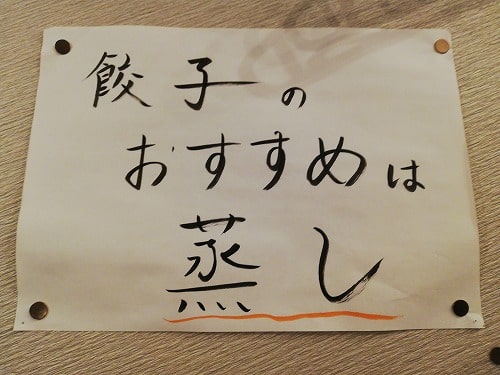 餃子の
おすすめは
蒸し